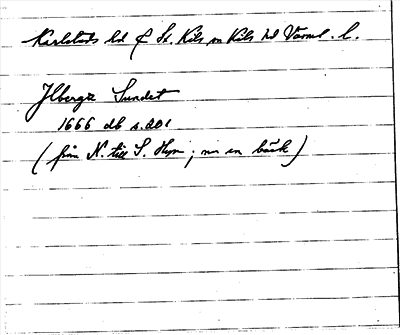 Karlstads hd & St. Kils sn Kils hd Värml. l.
Ilberga Sundet
1666 db s. 201
(från N. till S. Hyn; nu en bäck)